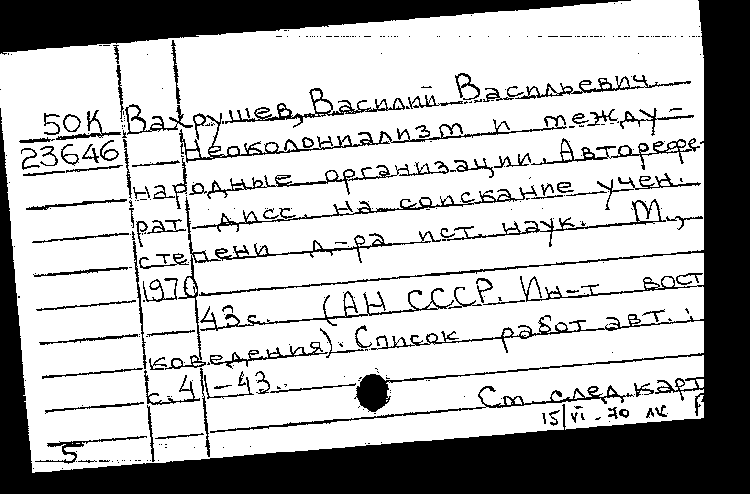 50К Вахрушев, Василий Васильевич
23646 Неоколониализм и между-
народные организации. Авторефе
рат дисс. на соискание учен.
степени д-ра ист. наук. М.,
1970.
43с. (АН СССР. Ин-т вост
коведения). Список работ авт.:
с. 41-43.
См след.карт
15/VI-70
5